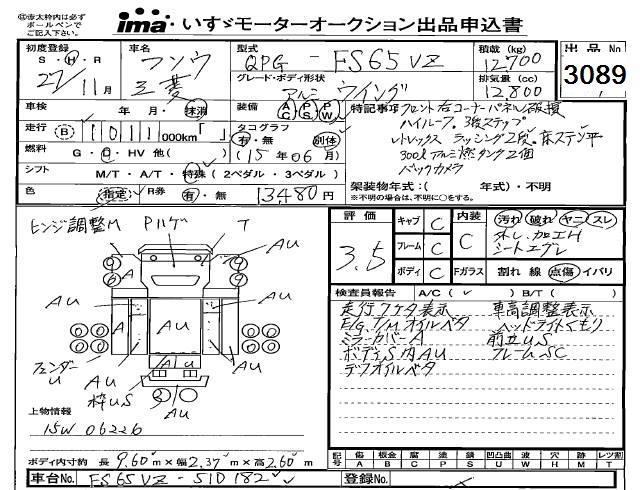 ㊟赤太枠内は必ず
ボールペンで
ご記入下さい。
ima いすゞモーターオークション出品申込書
初度登録 車名 型式 積載(kg) 出品No
S・H・R フソウ QPG - FS65VZ 12,700 3089
27/11月 三菱 グレード・ボディ形状 排気量(cc)
アルミウイング 12,800
車検 年・月・抹消 装備 AC PS PW 特記事項 フロント右コーナーパネル破損
走行 B 1011,000km「 」 タコグラフ 有・無・別体 ハイルーフ.3段ステップ
燃料 G・D・HV 他( ) (15年06月) レトラックス ラッシング2段.床ステン平
300ℓアルミ燃タンク2個
シフト M/T・A/T・特殊(2ペダル・3ペダル) バックカメラ
色 指定 R券 有・無 13480円 架装物年式:( 年式)・不明
※不明の場合は、不明に○をする。
ヒンジ調整M Pハゲ T
AU
AU AU
A A
フェンダーU AU AU
枠US AU
上物情報
15W 06226
ボディ内寸約 長9.60m×幅2.37m×高2.60m
評価 3.5
キャブ C 内装 C 汚れ 破れ ヤニ スレ
フレーム C 外し.加工H
シートエグレ
ボディ C Fガラス 割れ 線 点傷 イバリ
検査員報告 A/C( ✓ ) B/T( )
走行7ケタ表示 車高調整表示
E/G,T/Mオイルベタ ヘッドライトくもり
ミラーカバーA 前立US
ボディS内AU フレームSC
デフオイルベタ
記号 傷 板金 腐 塗 錆 凹凸曲 波 穴 欠 レツ割
A B C P S U W H M T
車台No. FS65VZ-510182 登録No.